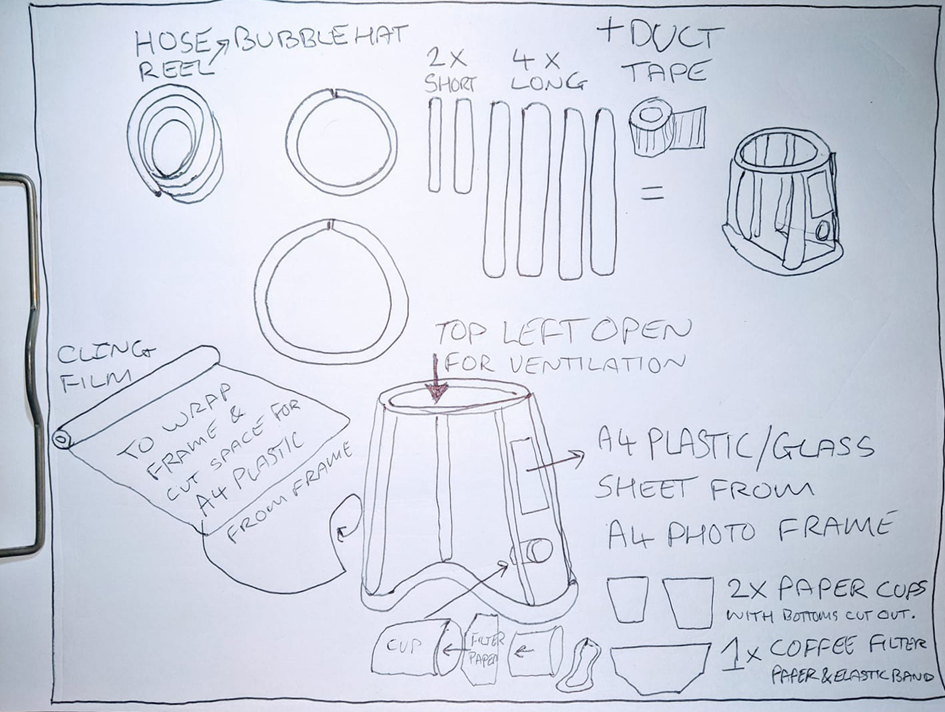 HOSE → BUBBLE HAT
REEL
2X
SHORT
4 X
LONG
+ DUCT
TAPE
=
CLING
FILM
TO WRAP
FRAME &
CUT SPACE FOR
A4 PLASTIC
FROM FRAME
TOP LEFT OPEN
FOR VENTILATION
A4 PLASTIC/GLASS
SHEET FROM
A4 PHOTO FRAME
2X PAPER CUPS
WITH BOTTOMS CUT OUT.
CUP
FILTER
PAPER
1X COFFEE FILTER
PAPER & ELASTIC BAND